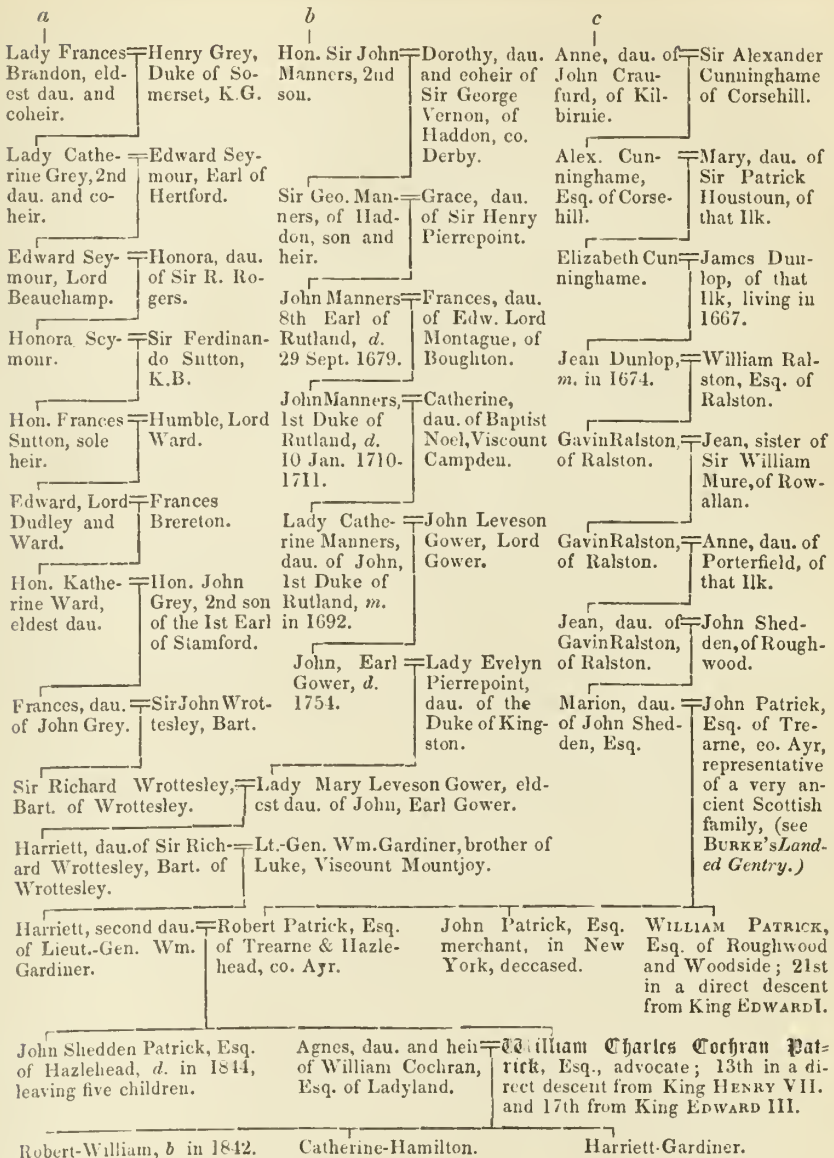 a
Lady Frances
Brandon, eld-
est dau. and
coheir.
Henry Grey,
Duke of So-
merset, K.G.
Lady Cathe-
rine Grey, 2nd
dau. and co-
heir.
Edward Sey-
mour, Earl of
Hertford.
Edward Sey-
mour, Lord
Beauchamp.
Honora, dau.
of Sir R. Ro-
gers.
Honora Sey-
mour.
Sir Ferdinan-
do Sutton,
K.B.
Hon. Frances
Sutton, sole
heir.
Humble, Lord
Ward.
Edward, Lord
Dudley and
Ward.
Frances
Brereton.
Hon. Kathe-
rine Ward,
eldest dau.
Hon. John
Grey, 2nd son
of the 1st Earl
of Stamford.
Frances, dau.
of John Grey.
Sir John Wrot-
tesley, Bart.
b
Hon. Sir John
Manners, 2nd
son.
Dorothy, dau.
and coheir of
Sir George
Vernon, of
Haddon, co.
Derby.
Sir Geo. Man-
ners, of Had-
don, son and
heir.
Grace, dau.
of Sir Henry
Pierrepoint.
John Manners
8th Earl of
Rutland, d.
29 Sept. 1679.
Frances, dau.
of Edw. Lord
Montague, of
Boughton.
John Manners,
1st Duke of
Rutland, d.
10 Jan. 1710-
1711.
Catherine,
dau. of Baptist
Noel, Viscount
Campden.
Lady Cathe-
rine Manners,
dau. of John,
1st Duke of
Rutland, m.
in 1692.
John Leveson
Gower, Lord
Gower.
John, Earl
Gower, d.
1754.
Lady Evelyn
Pierrepoint,
dau. of the
Duke of King-
ston.
c
Anne, dau. of
John Crau-
furd, of Kil-
birnie.
Sir Alexander
Cunninghame
of Corsehill.
Alex. Cun-
ninghame,
Esq. of Corse-
hill.
Mary, dau. of
Sir Patrick
Houstoun, of
that Ilk.
Elizabeth Cun
ninghame.
James Dun-
lop, of that
Ilk, living in
1667.
Jean Dunlop,
m. in 1674.
William Ral-
ston, Esq. of
Ralston.
Gavin Ralston,
of Ralston.
Jean, sister of
Sir William
Mure, of Row-
allan.
Gavin Ralston,
of Ralston.
Anne, dau. of
Porterfield, of
that Ilk.
Jean, dau. of
Gavin Ralston,
of Ralston.
John Shed-
den, of Rough-
wood.
Marion, dau.
of John Shed-
den, Esq.
John Patrick,
Esq. of Tre-
arne, co. Ayr,
representative
of a very an-
cient Scottish
family, (see
BURKE's Land-
ed Gentry.)
Sir Richard Wrottesley,
Bart. of Wrottesley.
Lady Mary Leveson Gower, eld-
est dau. of John, Earl Gower.
Harriett, dau. of Sir Rich-
ard Wrottesley, Bart. of
Wrottesley.
Lt.-Gen. Wm. Gardiner, brother of
Luke, Viscount Mountjoy.
Harriett, second dau.
of Lieut.-Gen. Wm.
Gardiner.
Robert Patrick, Esq.
of Trearne & Hazle-
head, co. Ayr.
John Patrick, Esq.
merchant, in New
York, deceased.
WILLIAM PATRICK,
Esq. of Roughwood
and Woodside; 21st
in a direct descent
from King EDWARD I.
John Shedden Patrick, Esq.
of Hazlehead, d. in 1844,
leaving five children.
Agnes, dau. and heir
of William Cochran,
Esq. of Ladyland.
William Charles Cochran Pat=
rick, Esq., advocate; 13th in a di-
rect descent from King HENRY VII.
and 17th from King EDWARD III.
Robert-William, b in 1842.
Catherine-Hamilton.
Harriett-Gardiner.